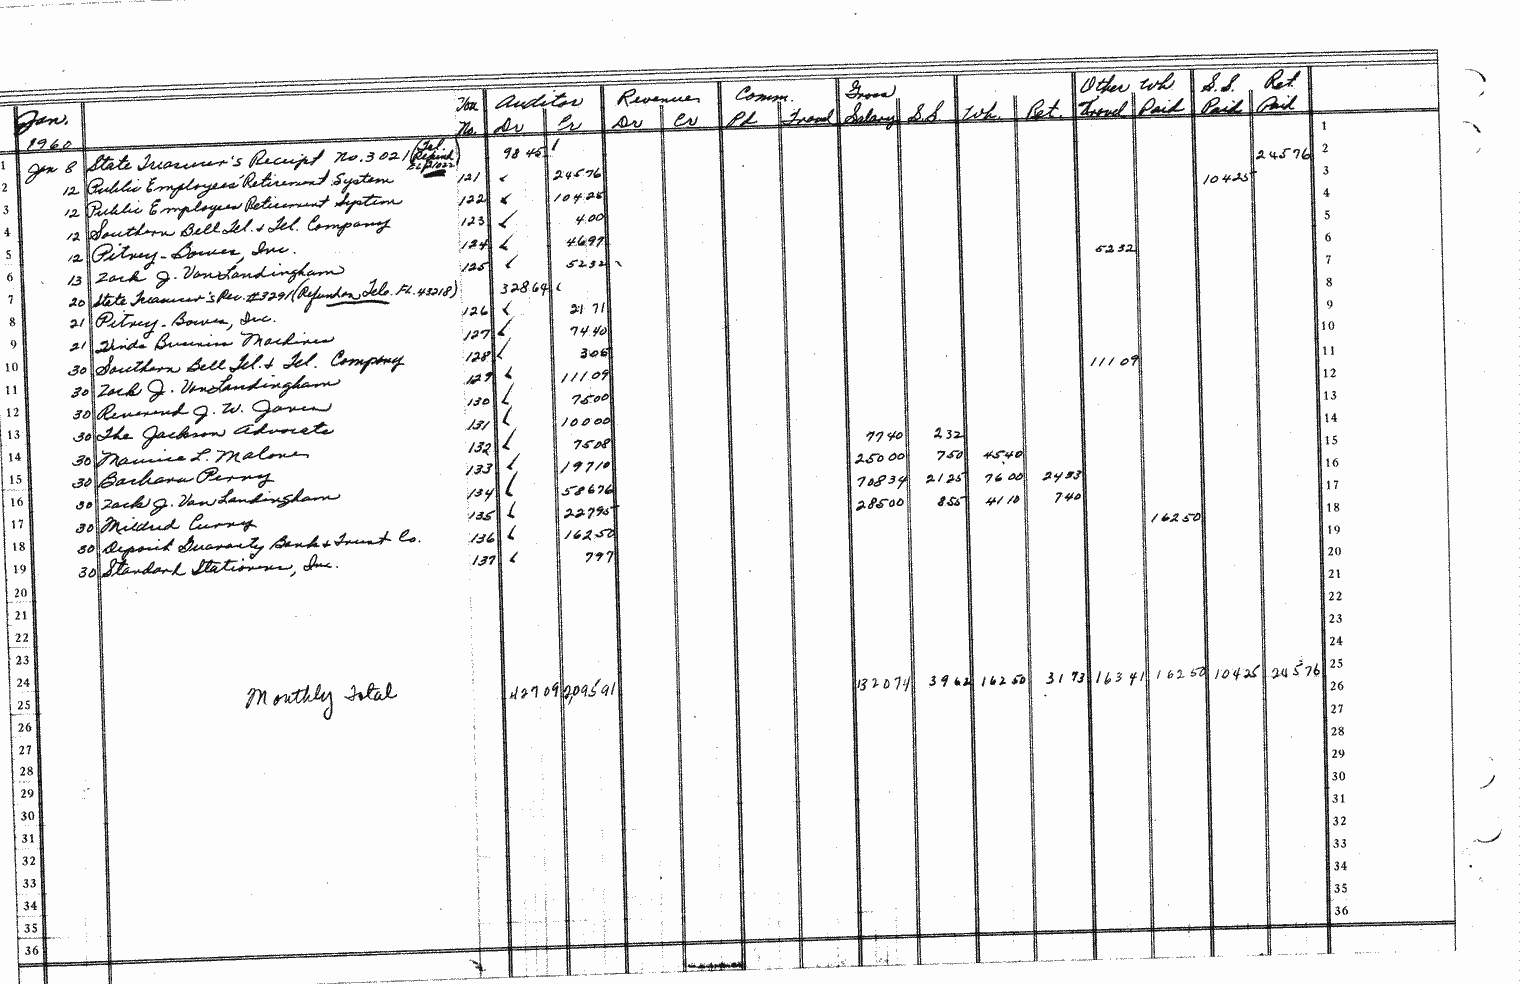 Jan. 1960 Vou. No. Auditor Dr Cr Revenues Dr Cr Comm. Pd Travel Gross Salary S.S Wh. Ret. Other Travel Wh Paid S.S. Paid Ret. Paid
1 Jan 8 State Treasurer's Receipt No. 3021 (Tel. Refund 98 45 1
2 12 Public Employees' Retirement System 121 ✓ 245 76 245 76 2
3 12 Public Employees Retirement System 122 ✓ 104 25 104 25 3
4 12 Southern Bell Tel. & Tel. Company 123 ✓ 4 00 4
5 12 Pitney-Bowes, Inc. 124 ✓ 46 97 5
6 13 Zack J. Van Landingham 125 ✓ 52 32 52 32 6
7 20 State Treasurer's Rec. #3291 (Refund on Tele. FL. 43218) 328 64 7
8 21 Pitney-Bowes, Inc. 126 ✓ 21 71 8
9 21 Hinds Business Machines 127 ✓ 74 40 9
10 30 Southern Bell Tel. & Tel. Company 128 ✓ 3 05 10
11 30 Zack J. Van Landingham 129 ✓ 111 09 111 09 11
12 30 Reverend J. W. Jones 130 ✓ 75 00 12
13 30 The Jackson Advocate 131 ✓ 100 00 13
14 30 Maurice L. Malone 132 ✓ 75 08 77 40 2 32 14
15 30 Barbara Perry 133 ✓ 197 10 250 00 7 50 45 40 15
16 30 Zack J. Van Landingham 134 ✓ 586 76 708 34 21 25 76 00 24 33 16
17 30 Mildred Curry 135 ✓ 227 95 285 00 8 55 41 10 7 40 17
18 30 Deposit Guaranty Bank & Trust Co. 136 ✓ 162 50 162 50 18
19 30 Standard Stationers, Inc. 137 ✓ 7 97 19
20 20
21 21
22 22
23 23
24 24
25 Monthly Total 427 09 2,095 91 1320 74 39 62 162 50 31 73 163 41 162 50 104 25 245 76 25
26 26
27 27
28 28
29 29
30 30
31 31
32 32
33 33
34 34
35 35
36 36